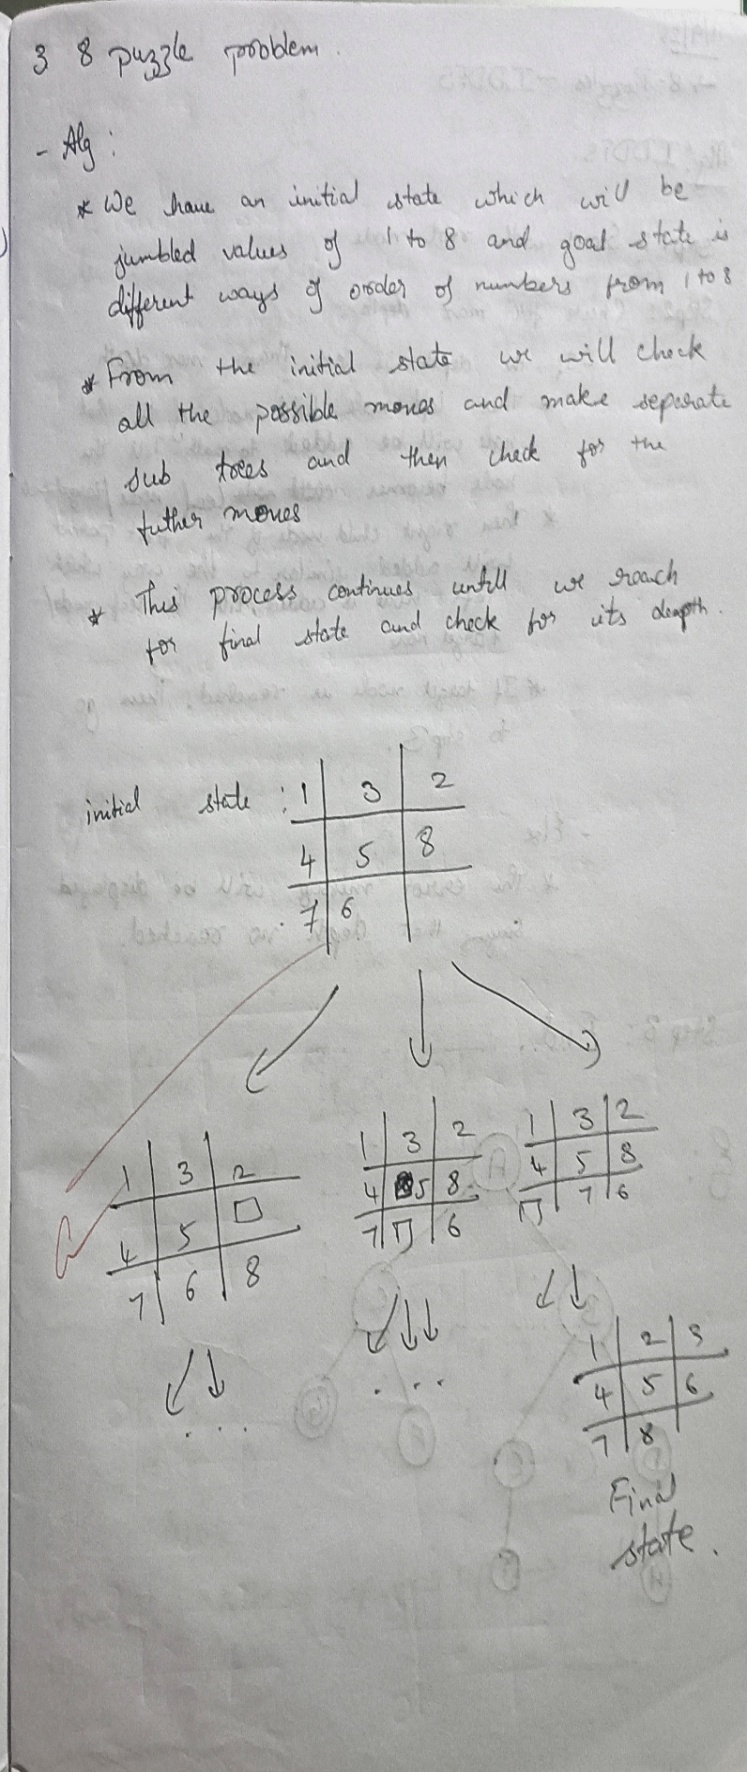 3 8 puzzle problem.
- Alg :
* We have an initial state which will be
jumbled values of 1 to 8 and goal state is
different ways of order of numbers from 1 to 8
* From the initial state we will check
all the possible moves and make separate
sub trees and then check for the
futher moves
* This process continues untill we reach
for final state and check for its deapth.
initial state : 1 3 2
4 5 8
7 6
1 3 2
4 5
7 6 8
1 3 2
4 5 8
7 6
1 3 2
4 5 8
7 6
. . .
. . .
1 2 3
4 5 6
7 8
Final
state.